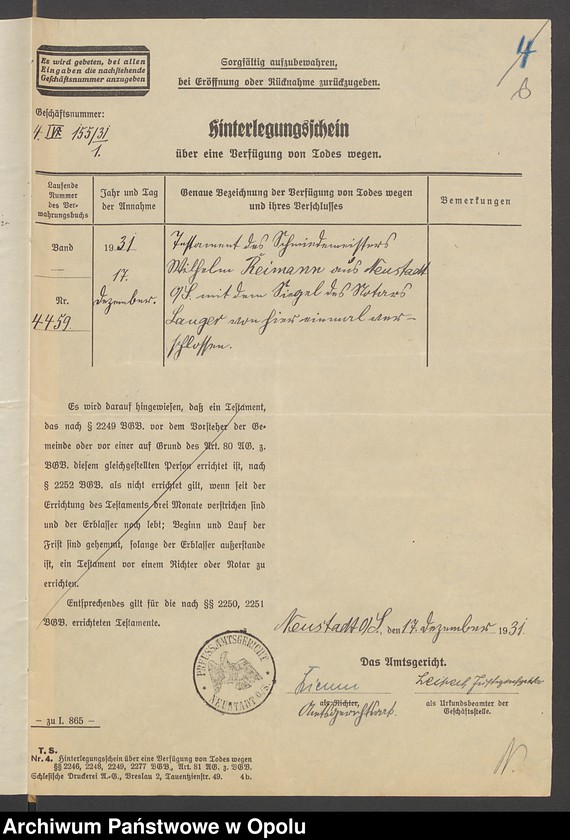 4
Es wird gebeten, bei allen
Eingaben die nachstehende
Geschäftsnummer anzugeben
Sorgfältig aufzubewahren,
bei Eröffnung oder Rücknahme zurückzugeben.
Geschäftsnummer:
4. IV. 155/31
1.
Hinterlegungsschein
über eine Verfügung von Todes wegen.
Laufende
Nummer
des Ver-
wahrungsbuchs
Jahr und Tag
der Annahme
Genaue Bezeichnung der Verfügung von Todes wegen
und ihres Verschlusses
Bemerkungen
Band
Nr.
4459.
1931
17.
Dezember.
Testament des Schmiedemeisters
Wilhelm Reimann aus Neustadt
O/S. mit dem Siegel des Notars
Langer von hier einmal ver-
schlossen.
Es wird darauf hingewiesen, daß ein Testament,
das nach § 2249 BGB. vor dem Vorsteher der Ge-
meinde oder vor einer auf Grund des Art. 80 AG. z.
BGB. diesem gleichgestellten Person errichtet ist, nach
§ 2252 BGB. als nicht errichtet gilt, wenn seit der
Errichtung des Testaments drei Monate verstrichen sind
und der Erblasser noch lebt; Beginn und Lauf der
Frist sind gehemmt, solange der Erblasser außerstande
ist, ein Testament vor einem Richter oder Notar zu
errichten.
Entsprechendes gilt für die nach §§ 2250, 2251
BGB. errichteten Testamente.
Neustadt O/S., den 17. Dezember 1931.
Das Amtsgericht.
als Richter,
Amtsgerichtsrat.
als Urkundsbeamter der
Geschäftsstelle.
PREUSS. AMTSGERICHT
NEUSTADT O/S.
– zu I. 865 –
T. S.
Nr. 4. Hinterlegungsschein über eine Verfügung von Todes wegen
§§ 2246, 2248, 2249, 2277 BGB., Art. 81 AG. z. BGB.
Schlesische Druckerei A.-G., Breslau 2, Tauentzienstr. 49. 4b.
Archiwum Państwowe w Opolu